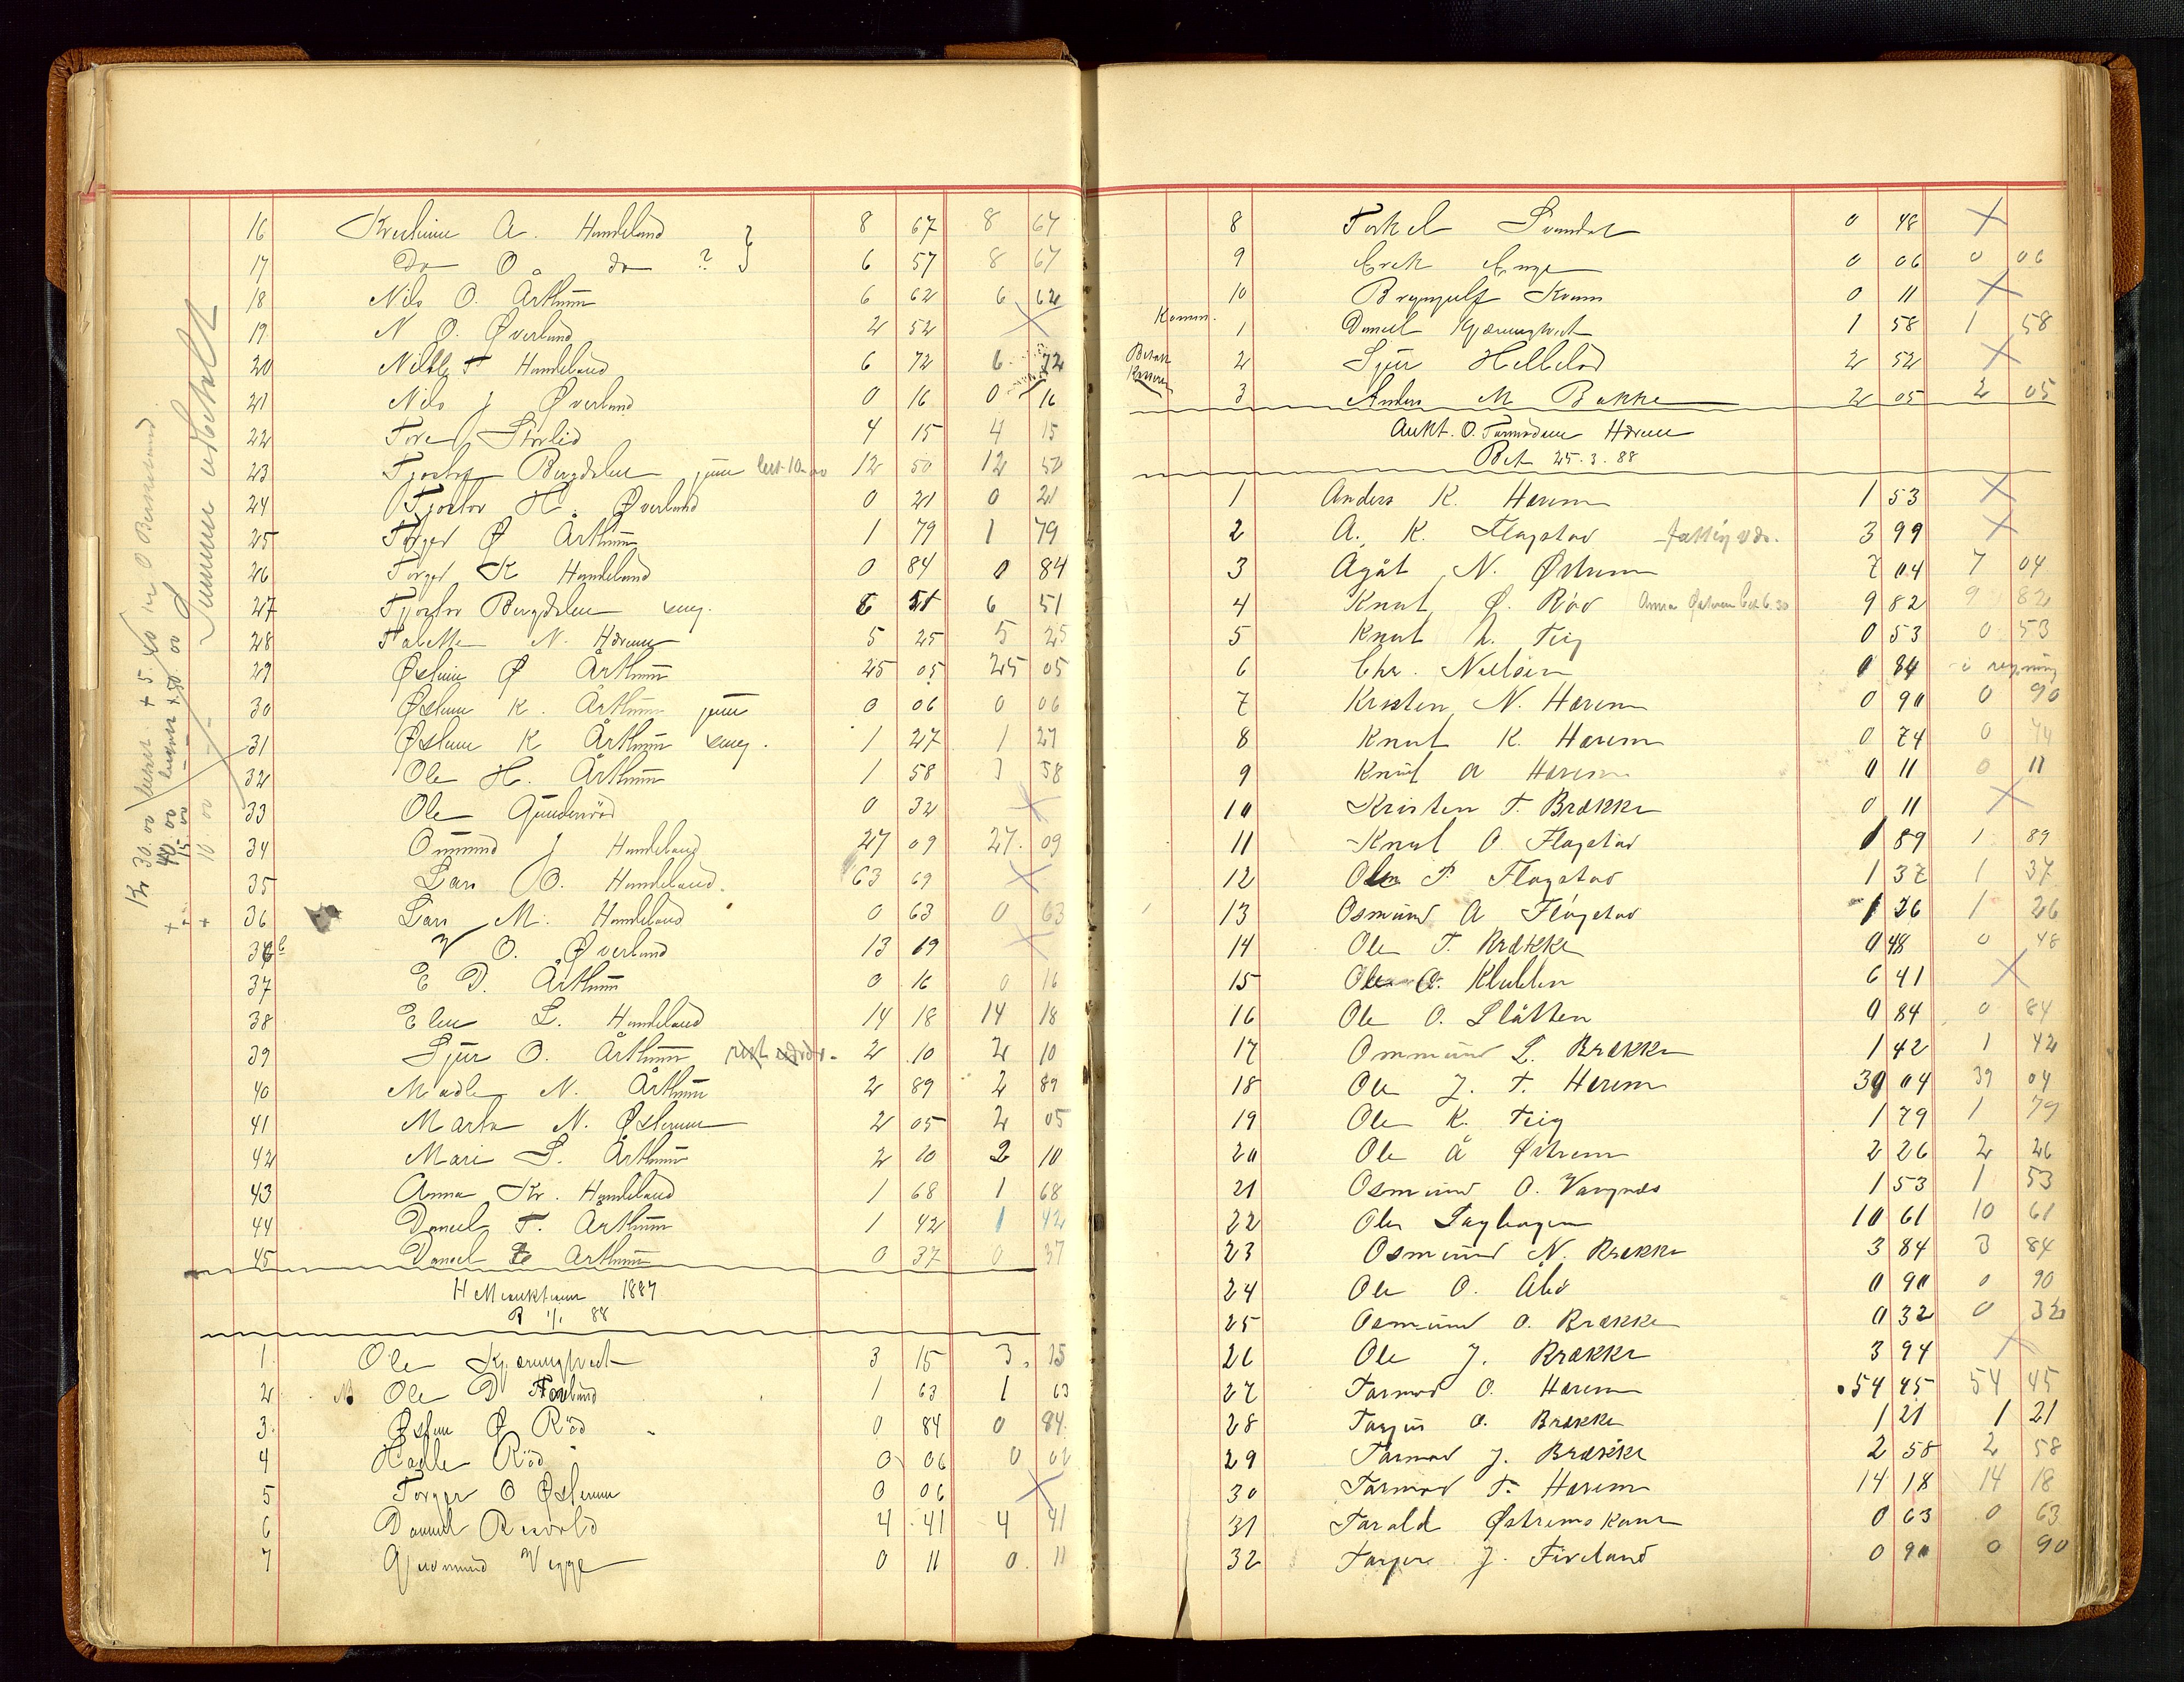 16 A. Hundeland 8 67 8 67
17 Do O. do ? 6 57 8 67
18 Nils O. Årthun 6 62 6 62
19 N O. Øverland 2 52 X
20 T Hundeland 6 72 6 72
21 Nils J Øverland 0 16 0 16
22 Tore Storlid 4 15 4 15
23 Tjostof Bergdalen jun 12 50 12 50
24 Tjostov H. Øverland 0 21 0 21
25 Torger Ø Årthun 1 79 1 79
26 Torger K Hundeland 0 84 0 84
27 Tjostov Bergdalen 6 51 6 51
28 N. Hærem 5 25 5 25
29 Østein Ø Årthun 25 05 25 05
30 Østein K. Årthun jun 0 06 0 06
31 Østein K Årthun 1 27 1 27
32 Ole H. Årthun 1 58 1 58
33 Ole 0 32 X
34 Ommund J Hundeland 27 09 27 09
35 Lars O. Hundeland. 63 69 X
36 Lars M. Hundeland 0 63 0 63
36b O. Øverland 13 69 X
37 E D. Årthun 0 16 0 16
38 Elen L. Hundeland 14 18 14 18
39 Sjur O. Årthun 2 10 2 10
40 Madle N. Årthun 2 89 2 89
41 Marta N. Østerem 2 05 2 05
42 Mari S. Årthun 2 10 2 10
43 Anna Kr. Hundeland 1 68 1 68
44 Daniel T. Årthun 1 42 1 42
45 Daniel Årthun 0 37 0 37
1887
1/1 88
1 Ole 3 15 3 15
2 Ole D 1 63 1 63
3 Østen Ø Röd 0 84 0 84
4 Röd 0 06 0 06
5 Torger O Østerem 0 06 X
6 Daniel 4 41 4 41
7 Vegge 0 11 0 11
8 Torkel Svendal 0 48 X
9 Erek Enge 0 06 0 06
10 Brynjulf Kvam 0 11 X
Komm. 1 Daniel 1 58 1 58
2 Sjur 2 52 X
3 Anders M Bakke 2 05 2 05
Aukt. O. Tarmodsen Hærem
Bet 25.3.88
1 Anders K. Hærem 1 53 X
2 A. K. Flagstad 3 99 X
3 Agåt N. Østrem 7 04 7 04
4 Knut Ø. Röd Anna Østrem bet 6.30 9 82 9 82
5 Knut L. Teig 0 53 0 53
6 Chr. Nielsen 0 84 i regning
7 Kristen N. Hærem 0 90 0 90
8 Knut K. Hærem 0 74 0 74
9 Knut A Hærem 0 11 0 11
10 Kristen T. Brække 0 11 X
11 Knut O. Flagstad 1 89 1 89
12 Ole P. Flagstad 1 37 1 37
13 Osmund A Flagstad 1 26 1 26
14 Ole T. Brække 0 48 0 48
15 Ole O. Klubben 6 41 X
16 Ole O. Slåtten 0 84 0 84
17 Ommund L. Brække 1 42 1 42
18 Ole J. T. Hærem 39 04 39 04
19 Ole K. Teig 1 79 1 79
20 Ole Å Østrem 2 26 2 26
21 Osmund O. Vangnes 1 53 1 53
22 Ole Laghagen 10 61 10 61
23 Osmund N. Brække 3 84 3 84
24 Ole O. 0 90 0 90
25 Osmund O. Brække 0 32 0 32
26 Ole J. Brække 3 94 X
27 Tarmod O. Hærem 54 45 54 45
28 Tarjei O. Brække 1 21 1 21
29 Tarmod J. Brække 2 58 2 58
30 Tarmod T. Hærem 14 18 14 18
31 Tarald Østremskaar 0 63 0 63
32 J. Fiveland 0 90 0 90